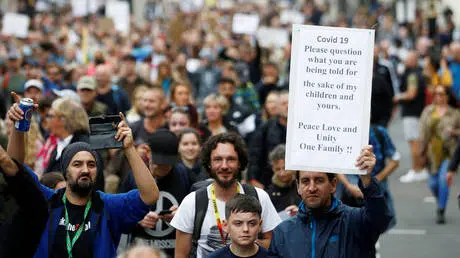 Covid 19
Please question
what you are
being told for
the sake of my
children and
yours.
Peace Love and
Unity
One Family !!